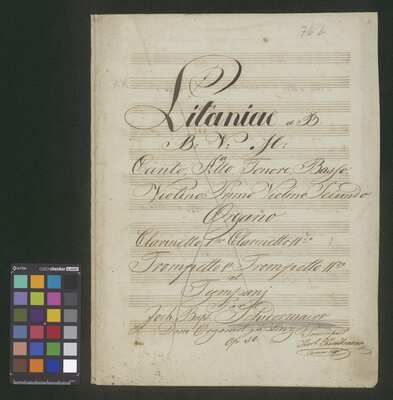 76 b
Litaniae in B
B: V: M:
Canto, Alto, Tenore, Basso
Violino Primo Violino Secundo
Organo
Clarinetto 1mo Clarinetto IIdo
Trompetto 1o Trompetto IIdo
et
Tympani
Joh. Bapt. Schiedermaier
Dom Organist zu Linz
Op. 30.